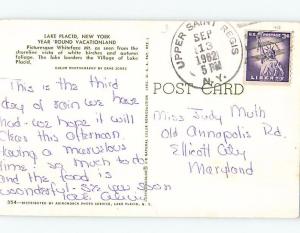 LAKE PLACID, NEW YORK
YEAR 'ROUND VACATIONLAND
Picturesque Whiteface Mt. as seen from the
shoreline vista of white birches and autumn
foliage. The lake borders the Village of Lake
Placid.
UPPER SAINT REGIS
SEP
13
5 PM
1962
N.Y.
3¢
LIBERTY
POST CARD
This is the third
day of rain we have
had - we hope it will
clear this afternoon.
Having a marvelous
time - so much to do
and the food is
wonderful - See you soon
Love
Miss Judy Muth
Old Annapolis Rd.
Ellicott City
Maryland
DISTRIBUTED BY ADIRONDACK PHOTO SERVICE, LAKE PLACID, N. Y.